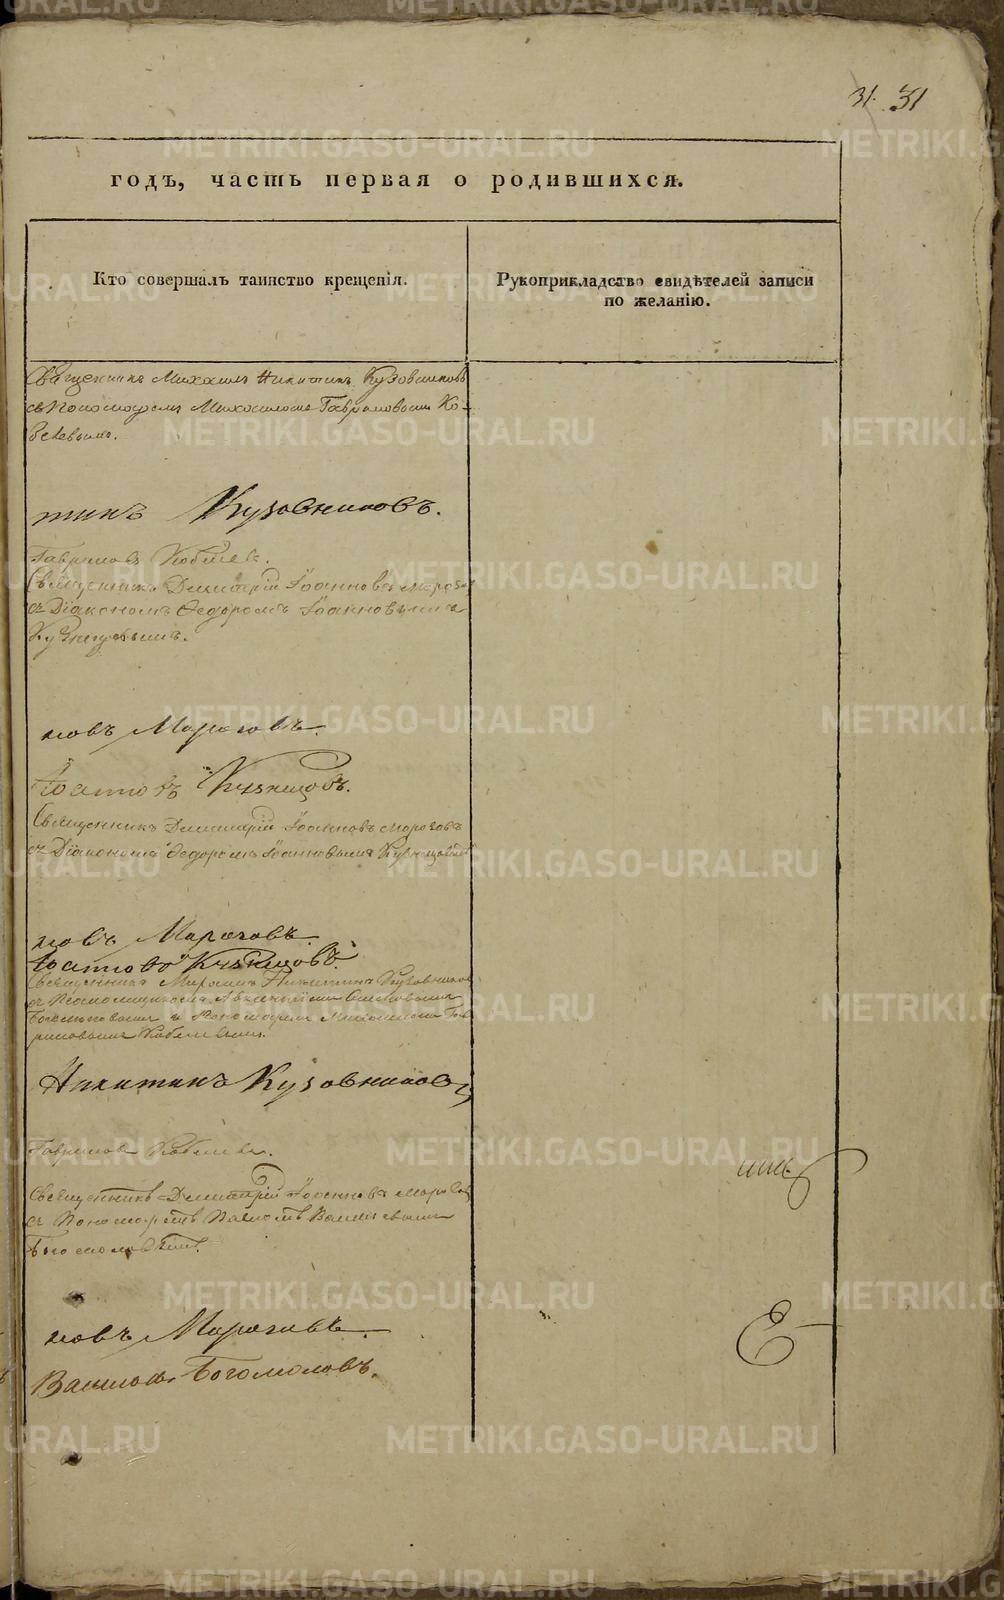 31. 31
годъ, часть первая о родившихся.
Кто совершалъ таинство крещенія.
Рукоприкладство свидѣтелей записи
по желанію.
Священникъ Михаилъ Никитинъ Кузовниковъ
съ Пономаремъ Михаиломъ Гавриловымъ Ко-
белевымъ.
тинъ Кузовниковъ.
Гавриловъ Кобелев.
Священникъ Димитрій Іоанновъ Морозов
съ Діакономъ Ѳедоромъ Іоанновымъ
Кузнецовымъ.
новъ Морозовъ.
Іоанновъ Кузнецовъ.
Священникъ Димитрій Іоанновъ Морозовъ
съ Діакономъ Ѳедоромъ Іоанновымъ Кузнецовымъ
новъ Морозовъ.
Іоанновъ Кузнецовъ.
Священникъ Никитинъ Кузовников
съ
и Пономаремъ Михаиломъ Гав-
риловымъ Кобелевымъ.
Никитинъ Кузовниковъ
Гавриловъ Кобелевъ.
Священникъ Димитрій Іоанновъ Морозов
съ Пономаремъ Павломъ Васильевымъ
новъ Морозовъ.
Васильевъ Богомоловъ.
METRIKI.GASO-URAL.RU